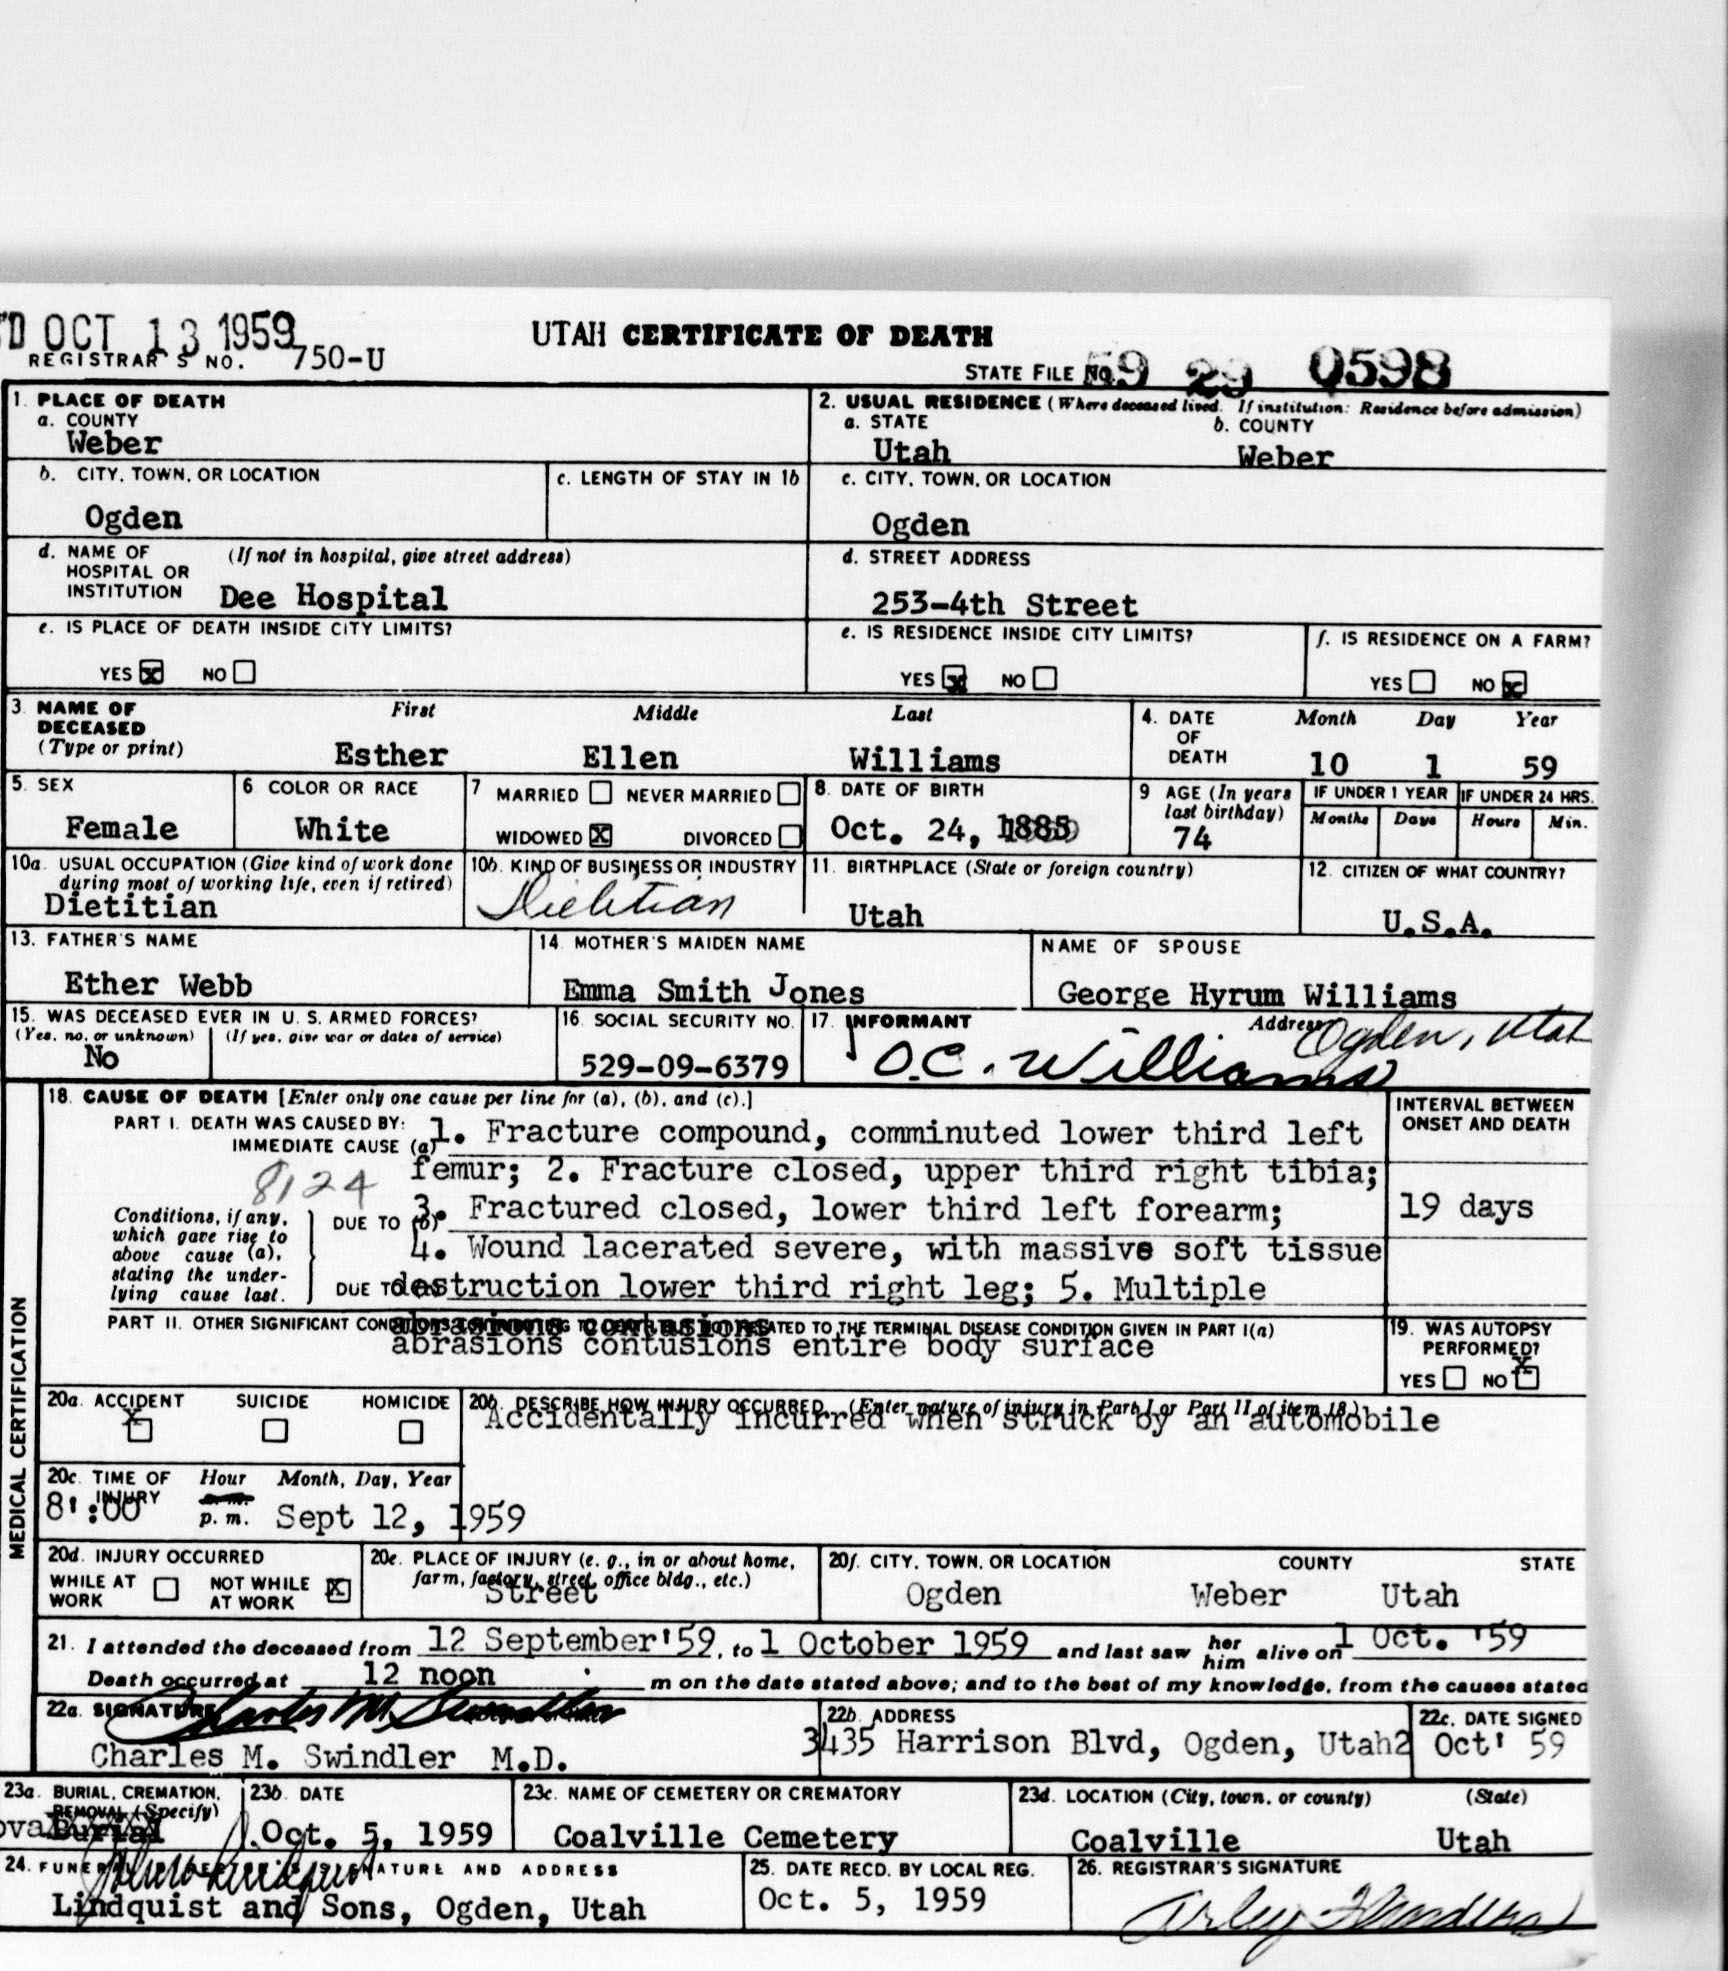 'D OCT 13 1959
REGISTRAR'S NO. 750-U
UTAH CERTIFICATE OF DEATH
STATE FILE NO. 59 29 0598
1. PLACE OF DEATH
a. COUNTY
Weber
2. USUAL RESIDENCE (Where deceased lived. If institution: Residence before admission)
a. STATE b. COUNTY
Utah Weber
b. CITY, TOWN, OR LOCATION
Ogden
c. LENGTH OF STAY IN 1b
c. CITY, TOWN, OR LOCATION
Ogden
d. NAME OF (If not in hospital, give street address)
HOSPITAL OR
INSTITUTION Dee Hospital
d. STREET ADDRESS
253-4th Street
e. IS PLACE OF DEATH INSIDE CITY LIMITS?
YES x NO
e. IS RESIDENCE INSIDE CITY LIMITS?
YES x NO
f. IS RESIDENCE ON A FARM?
YES NO x
3. NAME OF DECEASED (Type or print)
First Middle Last
Esther Ellen Williams
4. DATE OF DEATH
Month Day Year
10 1 59
5. SEX
Female
6. COLOR OR RACE
White
7 MARRIED NEVER MARRIED
WIDOWED X DIVORCED
8. DATE OF BIRTH
Oct. 24, 1885
9 AGE (In years last birthday)
74
IF UNDER 1 YEAR IF UNDER 24 HRS.
Months Days Hours Min.
10a. USUAL OCCUPATION (Give kind of work done
during most of working life, even if retired)
Dietitian
10b. KIND OF BUSINESS OR INDUSTRY
Dietitian
11. BIRTHPLACE (State or foreign country)
Utah
12. CITIZEN OF WHAT COUNTRY?
U.S.A.
13. FATHER'S NAME
Ether Webb
14. MOTHER'S MAIDEN NAME
Emma Smith Jones
NAME OF SPOUSE
George Hyrum Williams
15. WAS DECEASED EVER IN U. S. ARMED FORCES?
(Yes, no, or unknown) (If yes, give war or dates of service)
No
16. SOCIAL SECURITY NO.
529-09-6379
17. INFORMANT Address Ogden, Utah
O.C. Williams
MEDICAL CERTIFICATION
18. CAUSE OF DEATH [Enter only one cause per line for (a), (b), and (c).]
INTERVAL BETWEEN
ONSET AND DEATH
PART I. DEATH WAS CAUSED BY:
IMMEDIATE CAUSE (a) 1. Fracture compound, comminuted lower third left
femur; 2. Fracture closed, upper third right tibia;
8124
Conditions, if any,
which gave rise to
above cause (a),
stating the under-
lying cause last.
DUE TO (b) 3. Fractured closed, lower third left forearm;
19 days
4. Wound lacerated severe, with massive soft tissue
DUE TO destruction lower third right leg; 5. Multiple
PART II. OTHER SIGNIFICANT CONDITIONS CONTRIBUTING TO DEATH BUT NOT RELATED TO THE TERMINAL DISEASE CONDITION GIVEN IN PART I(a)
abrasions contusions
abrasions contusions entire body surface
19. WAS AUTOPSY
PERFORMED?
YES NO X
20a. ACCIDENT SUICIDE HOMICIDE
X
20b. DESCRIBE HOW INJURY OCCURRED. (Enter nature of injury in Part I or Part II of item 18.)
Accidentally incurred when struck by an automobile
20c. TIME OF INJURY Hour Month, Day, Year
8:00 a. m.
p. m. Sept 12, 1959
20d. INJURY OCCURRED
WHILE AT WORK NOT WHILE AT WORK X
20e. PLACE OF INJURY (e. g., in or about home,
farm, factory, street, office bldg., etc.)
Street
20f. CITY, TOWN, OR LOCATION COUNTY STATE
Ogden Weber Utah
21. I attended the deceased from 12 September '59, to 1 October 1959 and last saw her him alive on 1 Oct. '59
Death occurred at 12 noon m on the date stated above; and to the best of my knowledge, from the causes stated
22a. SIGNATURE Charles M. Swindler
Charles M. Swindler M.D.
22b. ADDRESS
3435 Harrison Blvd, Ogden, Utah
22c. DATE SIGNED
2 Oct' 59
23a. BURIAL, CREMATION,
REMOVAL (Specify)
Burial
23b. DATE
Oct. 5, 1959
23c. NAME OF CEMETERY OR CREMATORY
Coalville Cemetery
23d. LOCATION (City, town, or county) (State)
Coalville Utah
24. FUNERAL DIRECTOR'S SIGNATURE AND ADDRESS
Lindquist and Sons, Ogden, Utah
25. DATE RECD. BY LOCAL REG.
Oct. 5, 1959
26. REGISTRAR'S SIGNATURE